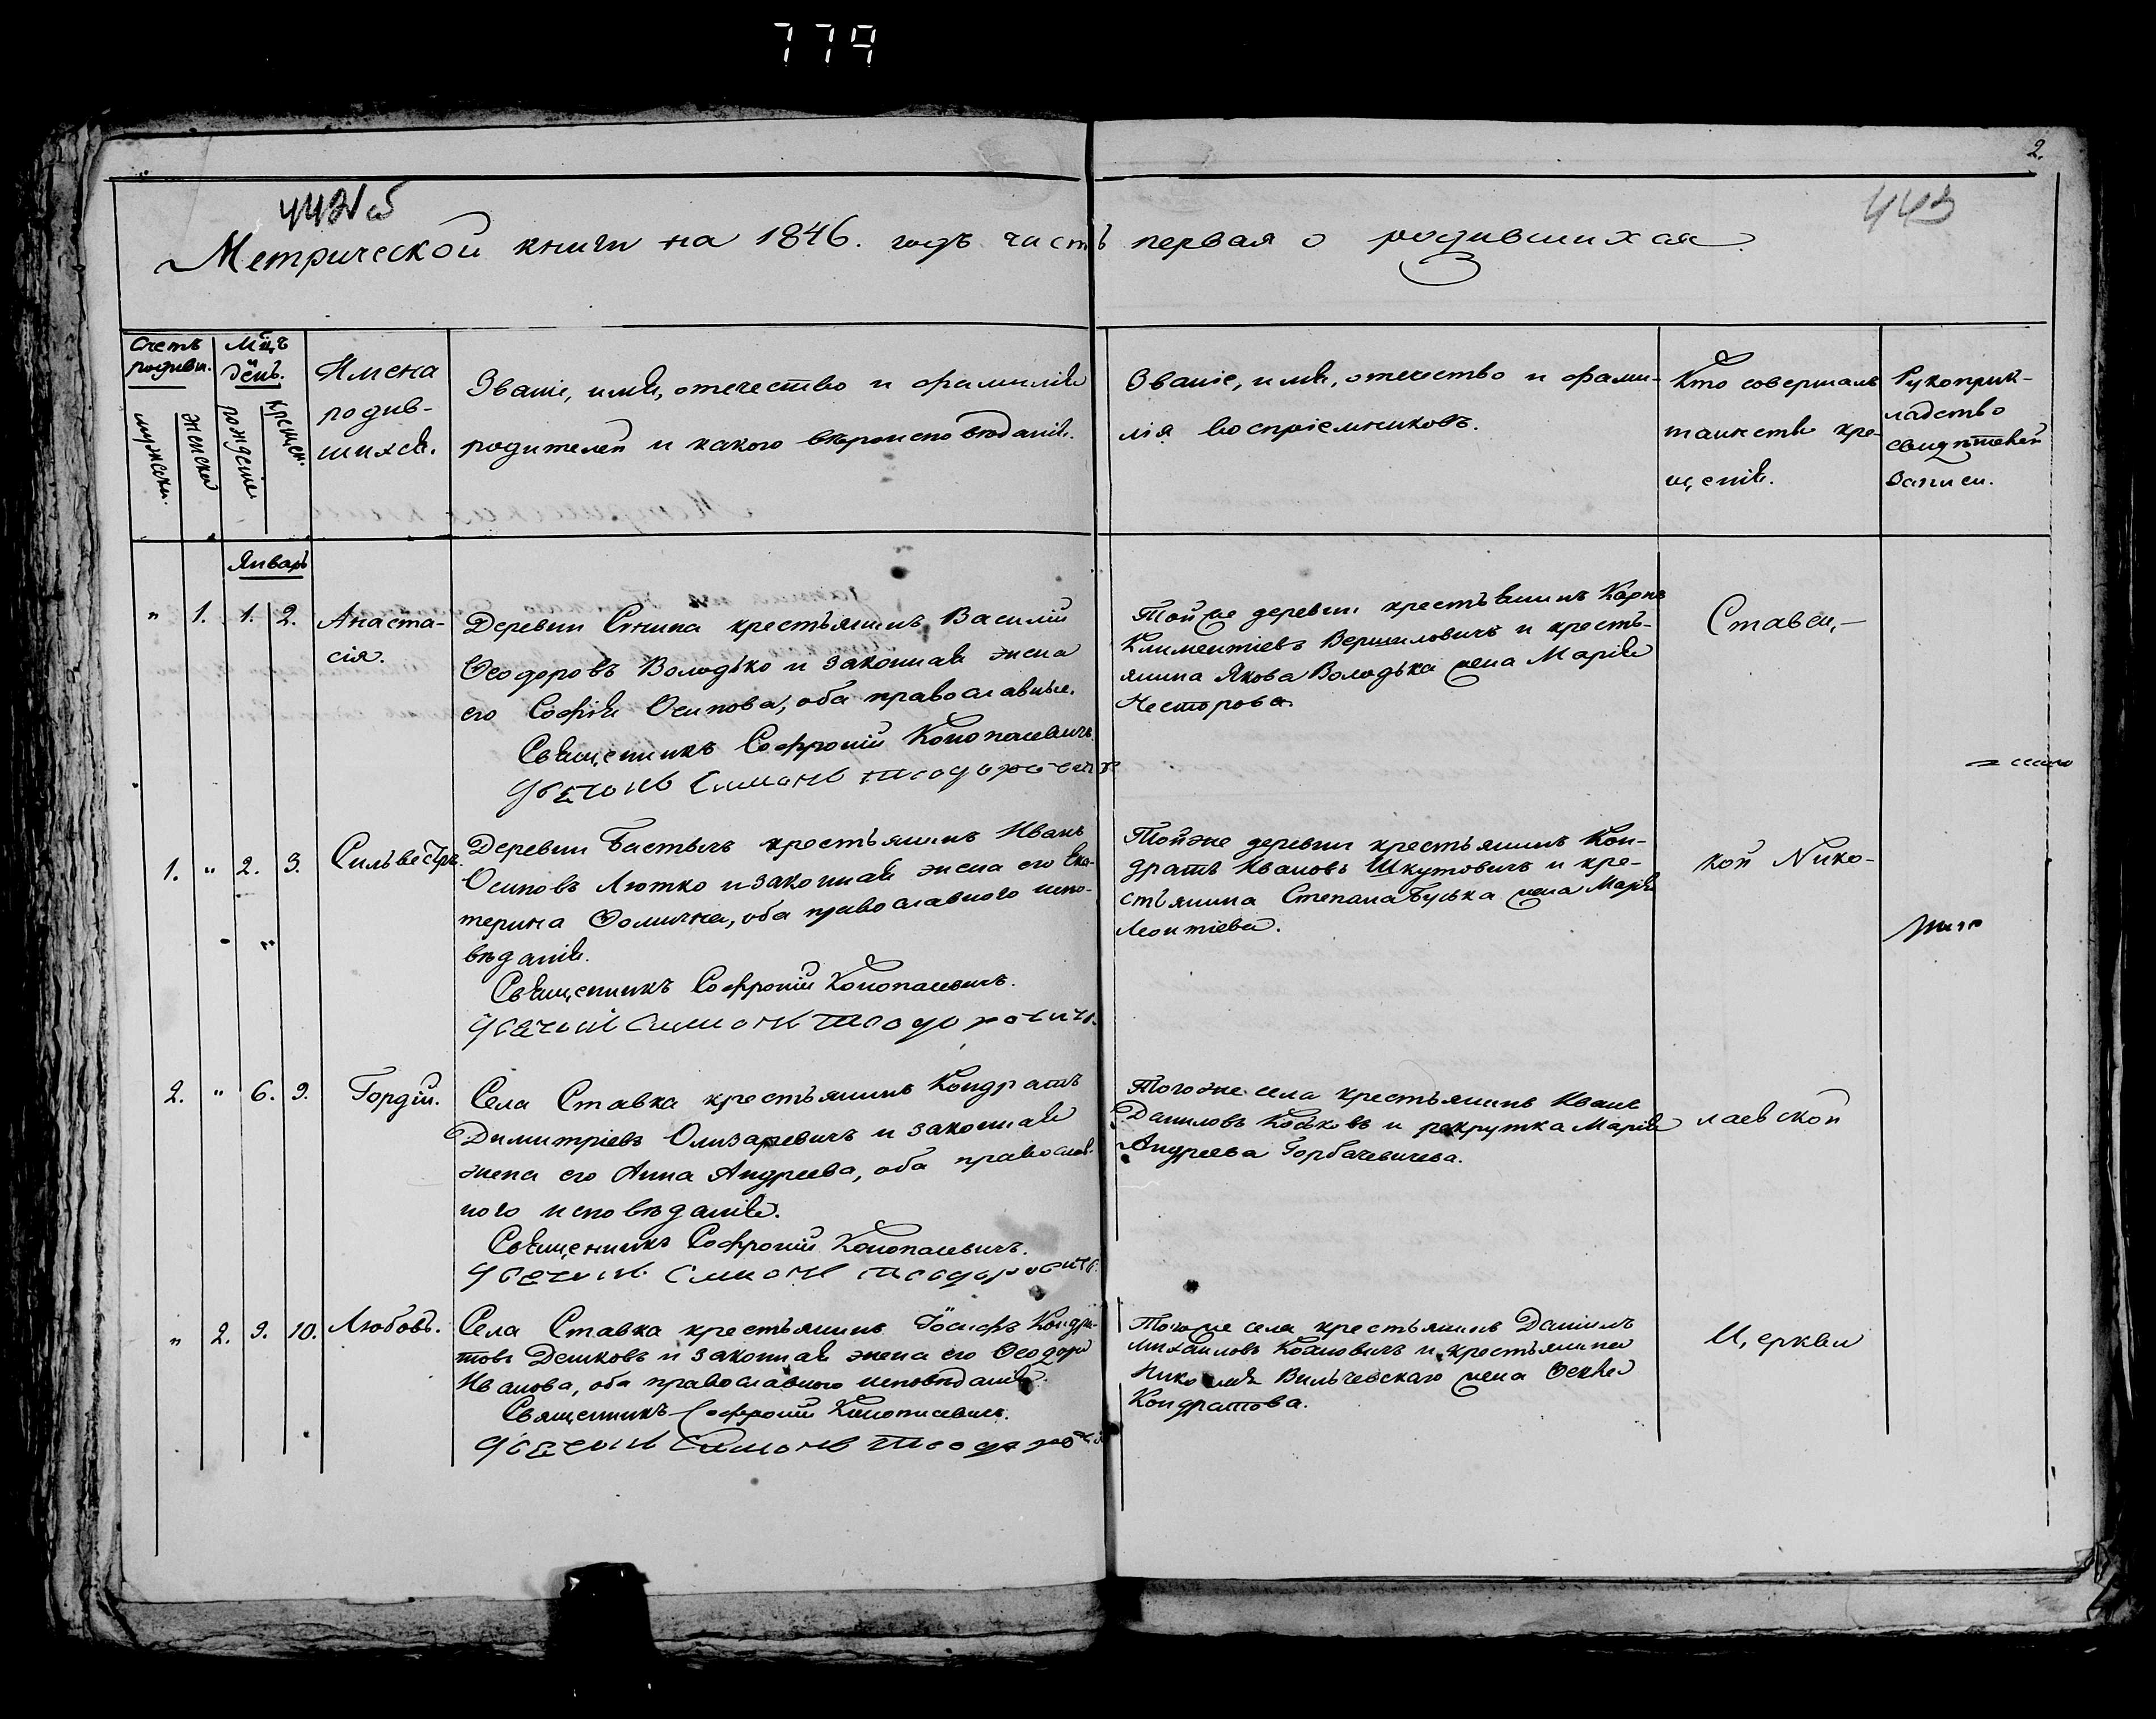 779
2.
443
Метрической книги на 1846. годъ часть первая о родившихся.
Счетъ родивш.
мужески.
женски
Мц̃ъ и день.
рожденіе
крещен.
Имена
родив-
шихся.
Званіе, имя, отечество и фамилія
родителей и какого вѣроисповѣданія.
Званіе, имя, отечество и фами-
лія воспріемниковъ.
Кто совершалъ
таинство кре-
щенія.
Рукоприк-
ладство
свидѣтелей
записи.
Январь
" 1. 1. 2.
Анаста-
сія.
Деревни крестьянинъ Василій
Ѳеодоровъ Володько и законная жена
его Софія Осипова, оба православные.
Священникъ Софроній Конопасевичъ.
Симонъ Теодоровичъ
Той же деревни крестьянинъ Карпъ
Климентіевъ Вершиловичъ и кресть-
янина Якова Володька жена Марія
Несторова.
Ставец,-
1. " 2. 3.
Сильвестръ.
Деревни Бастычъ крестьянинъ Иванъ
Осиповъ Лютко и законная жена его Ека-
терина Ѳомична, оба православнаго испо-
вѣданія.
Священникъ Софроній Конопасевичъ.
Симонъ Теодоровичъ.
Той же деревни крестьянинъ Кон-
дратъ Ивановъ Шкутовичъ и кре-
стьянина Степана Буська жена Марія
Леонтіева.
кой Нико-
2. " 6. 9.
Гордій.
Села Ставка крестьянинъ Кондратъ
Димитріевъ Олизаревичъ и законная
жена его Анна Андреева, оба православ-
ного исповѣданія.
Священникъ Софроній Конопасевичъ.
Симонъ Теодоровичъ.
Того же села крестьянинъ Иванъ
Даниловъ и рекрутка Марія
Андреева Горбачевичева.
лаевской
" 2. 9. 10.
Любовь.
Села Ставка крестьянинъ Іосифъ Кондра-
товъ Дешковъ и законная жена его Ѳеодора
Иванова, оба православного исповѣданія.
Священникъ Софроній Конопасевичъ.
Симонъ
Того же села крестьянинъ Даніилъ
Михаиловъ Кохновичъ и крестьянина
Николая Вильчевскаго жена Ѳекла
Кондратова.
Церкви